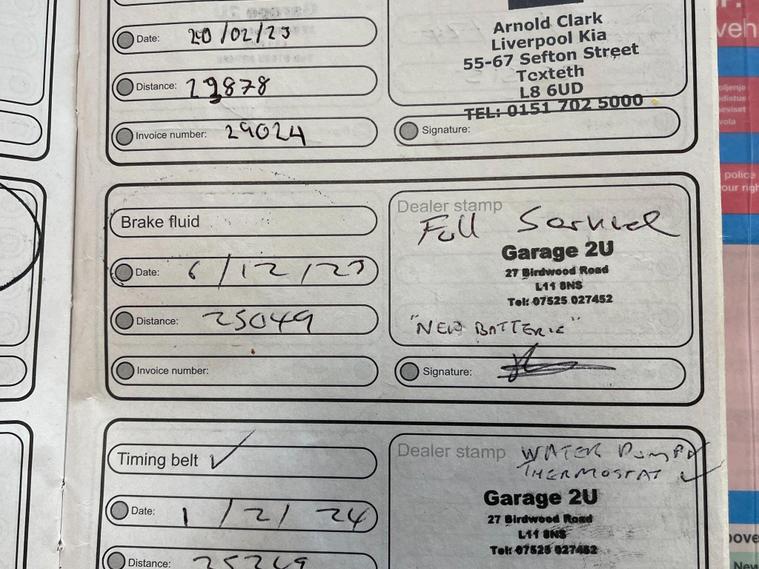 Date: 20/02/23
Distance: 29878
Invoice number: 29024
Arnold Clark
Liverpool Kia
55-67 Sefton Street
Toxteth
L8 6UD
TEL: 0151 702 5000
Signature:
Brake fluid
Date: 6/12/23
Distance: 25049
Invoice number:
Dealer stamp
Full Serviced
Garage 2U
27 Birdwood Road
L11 8NS
Tel: 07525 027452
"NEW BATTERIE"
Signature:
Timing belt ✓
Date: 1/2/24
Distance: 25269
Dealer stamp
WATER PUMP
THERMOSTAT ✓
Garage 2U
27 Birdwood Road
L11 8NS
Tel: 07525 027452
veh
police
your righ
New